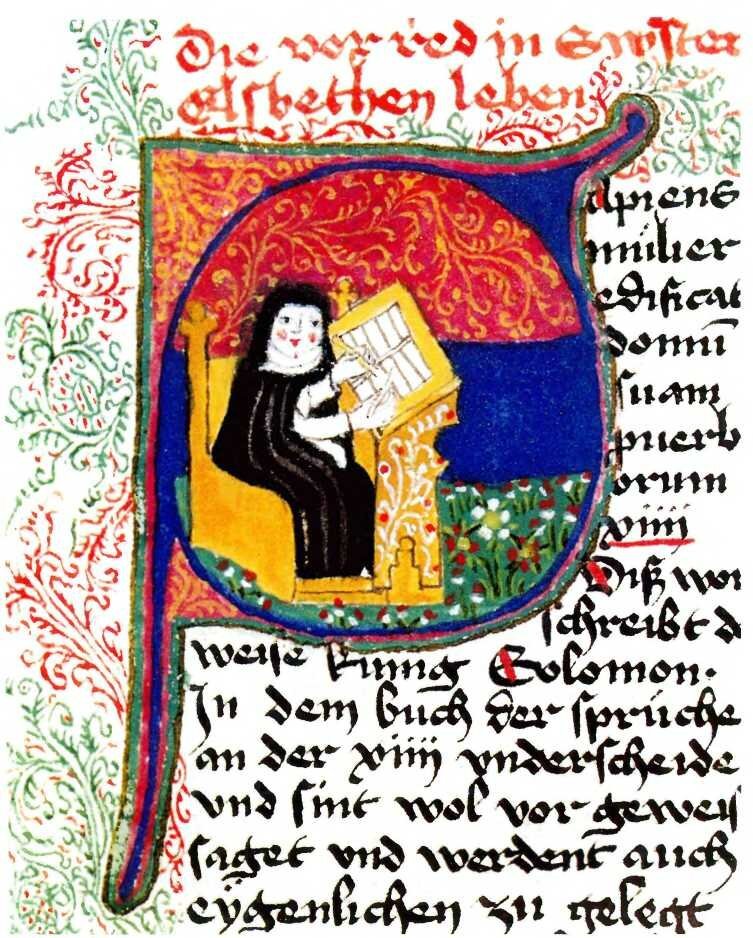 Die vor red in Swster
Elsbethen leben
apiens
mulier
edificat
domū
suam
puerb
orum
xiiii
Diß wor
schreibt de
weise kunig Solomon.
In dem buch der sprüche
an der xiiii vnderscheide
vnd sint wol vor geweis
saget vnd werdent auch
eÿgenlichen zu gelegt